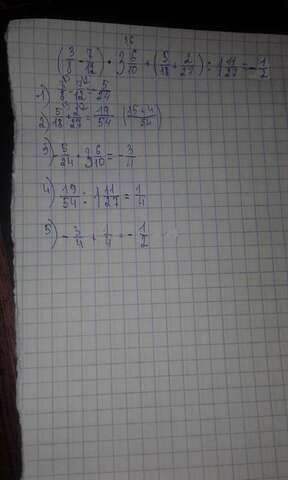 16
(3/8 - 7/12) · 3 6/10 + (5/18 + 2/27) : 1 11/27 = - 1/2
1) 3/8 - 7/12 = - 5/24
2) 5/18 + 2/27 = 19/54 (15+4/54)
3) - 5/24 · 3 6/10 = - 3/4
4) 19/54 : 1 11/27 = 1/4
5) - 3/4 + 1/4 = - 1/2